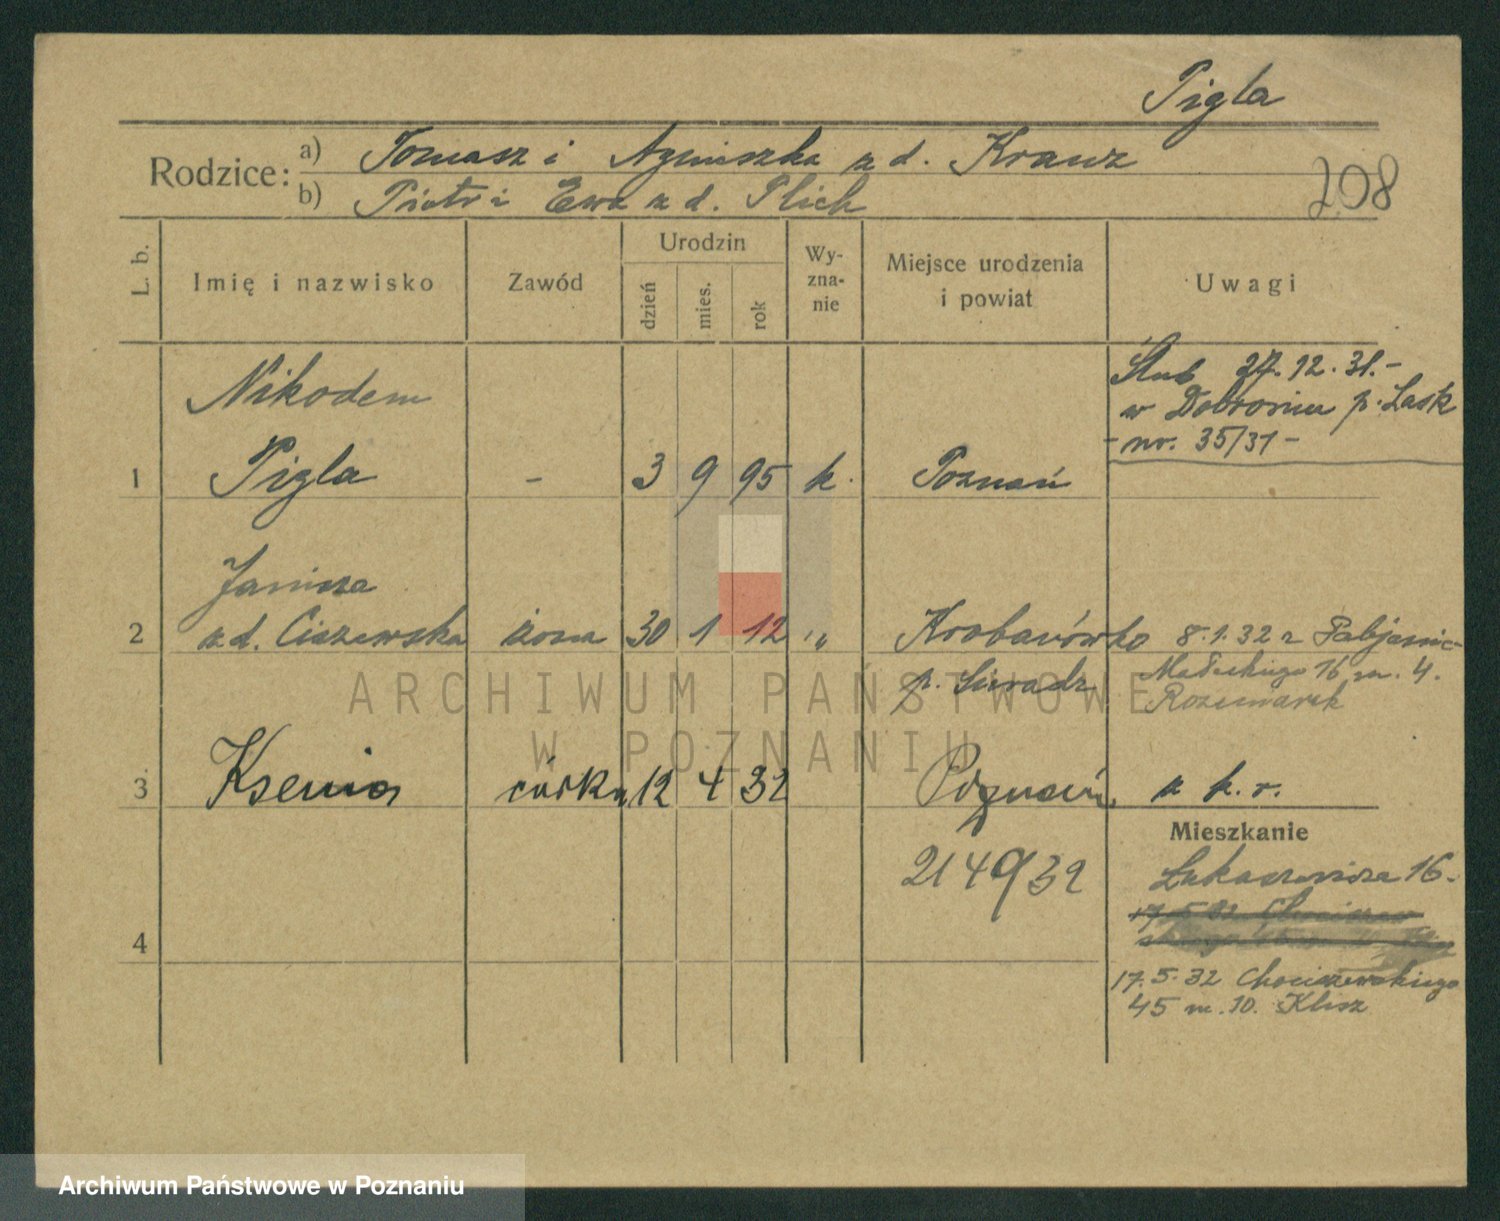 Pigla
Rodzice: a) Tomasz i Agnieszka z d. Krauz
b) Piotr i Ewa z d. Plich
208
L. b.
Imię i nazwisko
Zawód
Urodzin
dzień
mies.
rok
Wy-
zna-
nie
Miejsce urodzenia
i powiat
Uwagi
Ślub 27.12.31.-
w Dobroniu p. Łask
- nr. 35/31 -
Nikodem
1 Pigla - 3 9 95 k. Poznań
Janina
2 z d. Ciszewska żona 30 1 12 " 8.1.32 z Pabjanic
p. Sieradz
16 m. 4.
3 Ksenia córka 12 4 32 Poznań z k. r.
Mieszkanie
2149/32
Łukaszewicza 16.
4
17.5.32 Chociszewskiego
45 m. 10. Klisz
ARCHIWUM PAŃSTWOWE
W POZNANIU
Archiwum Państwowe w Poznaniu